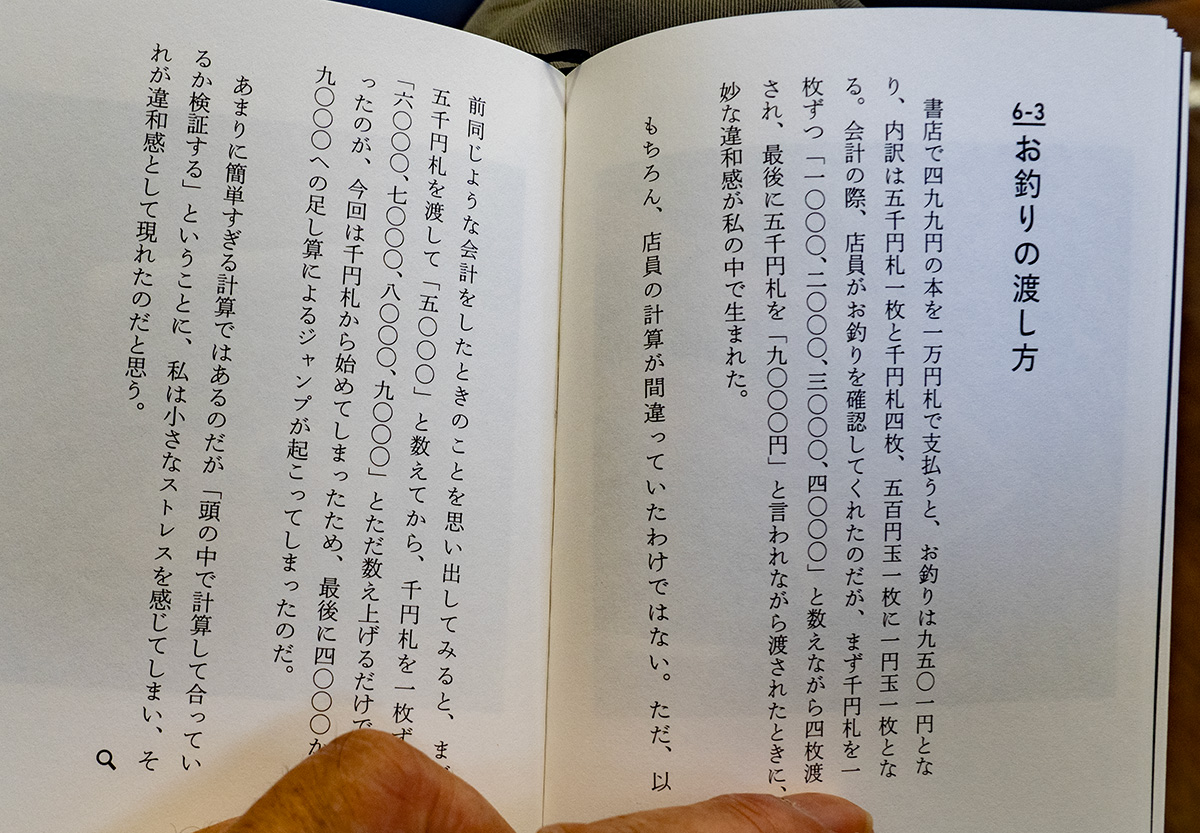 6-3 お釣りの渡し方
書店で四九九円の本を一万円札で支払うと、お釣りは九五〇一円とな
り、内訳は五千円札一枚と千円札四枚、五百円玉一枚に一円玉一枚とな
る。会計の際、店員がお釣りを確認してくれたのだが、まず千円札を一
枚ずつ「一〇〇〇、二〇〇〇、三〇〇〇、四〇〇〇」と数えながら四枚渡
され、最後に五千円札を「九〇〇〇円」と言われながら渡されたときに、
妙な違和感が私の中で生まれた。
もちろん、店員の計算が間違っていたわけではない。ただ、以
前同じような会計をしたときのことを思い出してみると、ま
五千円札を渡して「五〇〇〇」と数えてから、千円札を一枚ず
「六〇〇〇、七〇〇〇、八〇〇〇、九〇〇〇」とただ数え上げるだけで
ったのが、今回は千円札から始めてしまったため、最後に四〇〇〇か
九〇〇〇への足し算によるジャンプが起こってしまったのだ。
あまりに簡単すぎる計算ではあるのだが「頭の中で計算して合ってい
るか検証する」ということに、私は小さなストレスを感じてしまい、そ
れが違和感として現れたのだと思う。